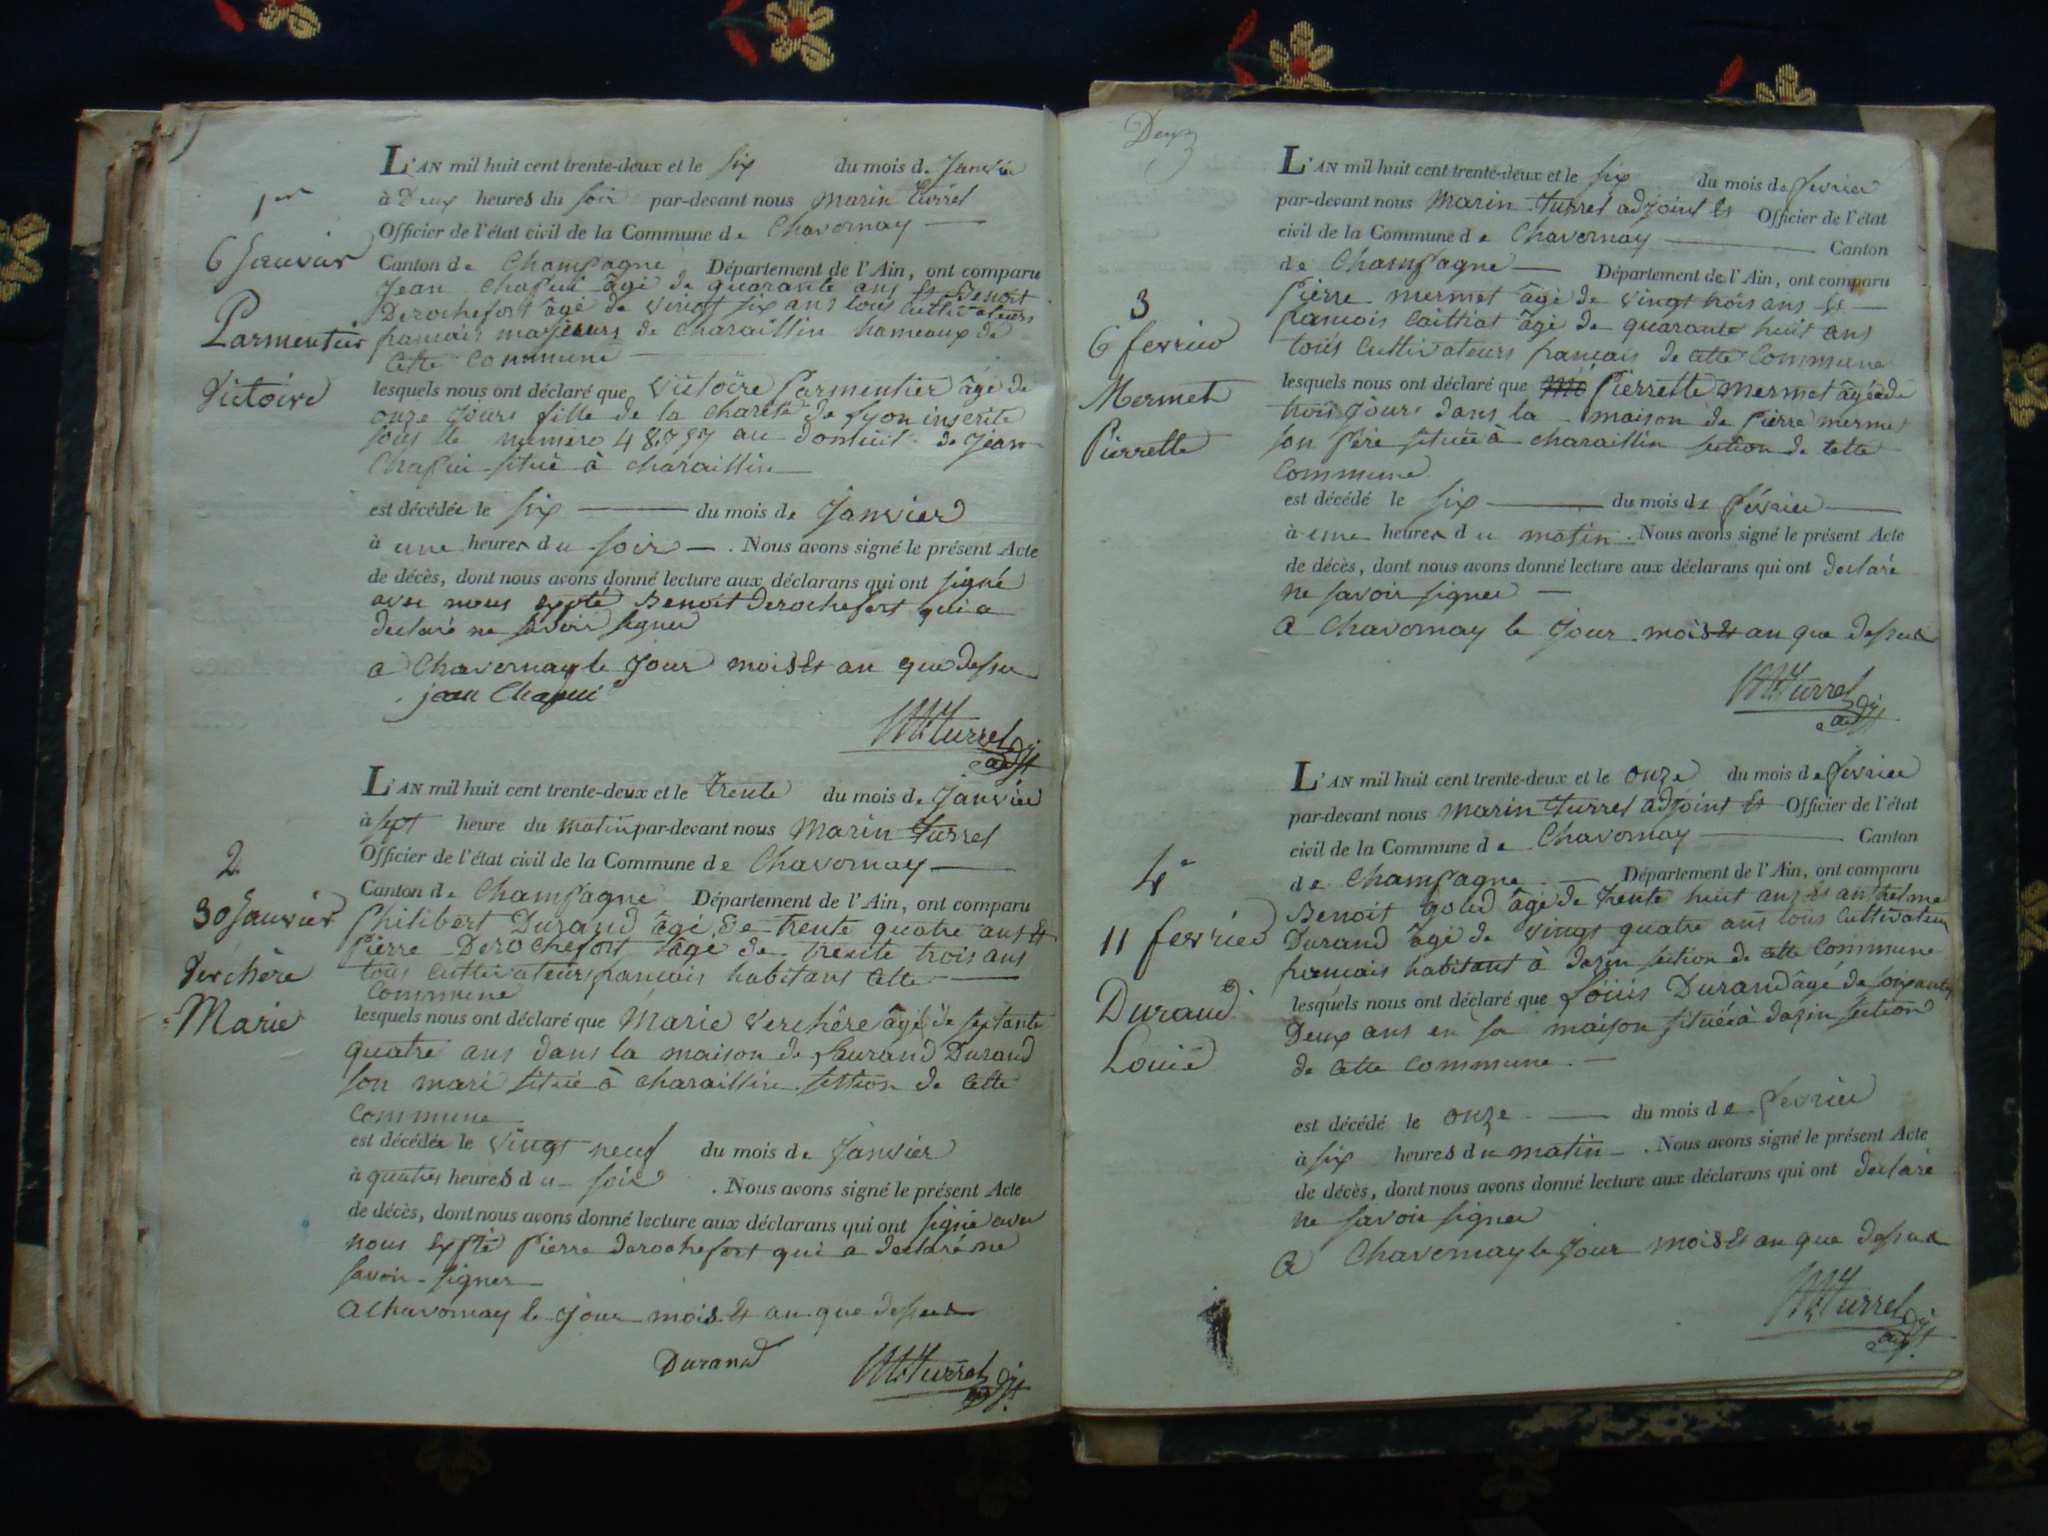 1er
6 Janvier
Parmentier
Victoire
L'AN mil huit cent trente-deux et le six du mois de Janvier
à Deux heures du soir par-devant nous Marin Turrel
Officier de l'état civil de la Commune de Chavornay
Canton de Champagne Département de l'Ain, ont comparu
Jean Chapui âgé de quarante ans et Benoit
Derochefort âgé de vingt six ans tous cultivateurs
francais majeurs de charaillin hameaux de
cette commune
lesquels nous ont déclaré que Victoire Parmentier âgé de
onze jours fille de la charité de Lyon inscrite
sous le numero 48757 au domicil de Jean
Chapui situé à charaillin
est décédée le six du mois de Janvier
à une heures du soir . Nous avons signé le présent Acte
de décès, dont nous avons donné lecture aux déclarans qui ont signé
avec nous expté Benoit Derochefort qui a
declaré ne savoir signer
a Chavornay le Jour mois et an que dessu
jean Chapui
M Turrel adjt
2
30 Janvier
Verchère
Marie
L'AN mil huit cent trente-deux et le trente du mois de Janvier
à sept heure du matin par-devant nous Marin Turrel
Officier de l'état civil de la Commune de Chavornay
Canton de Champagne Département de l'Ain, ont comparu
Philibert Durand âgé de trente quatre ans et
Pierre Derochefort âgé de trente trois ans
tous cultivateurs francais habitant cette
commune
lesquels nous ont déclaré que Marie Verchère âgé de septante
quatre ans dans la maison de Laurand Durand
son mari situé à charaillin section de cette
commune
est décédée le vingt neuf du mois de Janvier
à quatres heures du soir . Nous avons signé le présent Acte
de décès, dont nous avons donné lecture aux déclarans qui ont signé avec
nous expté Pierre derochefort qui a declaré ne
savoir signer
A chavornay le Jour mois et an que dessus
Durand
M Turrel adjt.
Deux
3
6 fevrier
Mermet
Pierrette
L'AN mil huit cent trente-deux et le six du mois de fevrier
par-devant nous Marin Turrel adjoint et Officier de l'état
civil de la Commune de Chavornay Canton
de Champagne Département de l'Ain, ont comparu
Pierre mermet âgé de vingt trois ans et
francois Caittiat âgé de quarante huit ans
tous Cultivateurs francais de cette Commune
lesquels nous ont déclaré que Pierrette mermet âgée de
trois Jours dans la maison de Pierre mermet
son Père située à charaillin section de cette
commune
est décédé le six du mois de février
à une heures du matin . Nous avons signé le présent Acte
de décès, dont nous avons donné lecture aux déclarans qui ont declaré
ne savoir signer
A Chavornay le Jour mois et an que dessus
M Turrel adjt
4e
11 fevrier
Durand
Louis
L'AN mil huit cent trente-deux et le onze du mois de fevrier
par-devant nous Marin Turrel adjoint et Officier de l'état
civil de la Commune de Chavornay Canton
de Champagne Département de l'Ain, ont comparu
Benoit goud âgé de trente huit ans et anthelme
Durand âgé de vingt quatre ans tous Cultivateur
francais habitant à dazin section de cette commune
lesquels nous ont déclaré que Louis Durand âgé de soixante
Deux ans en sa maison située à dazin section
de cette commune
est décédé le onze du mois de fevrier
à six heures du matin . Nous avons signé le présent Acte
de décès, dont nous avons donné lecture aux déclarans qui ont declaré
ne savoir signer
A Chavornay le Jour mois et an que dessus
M Turrel adjt.